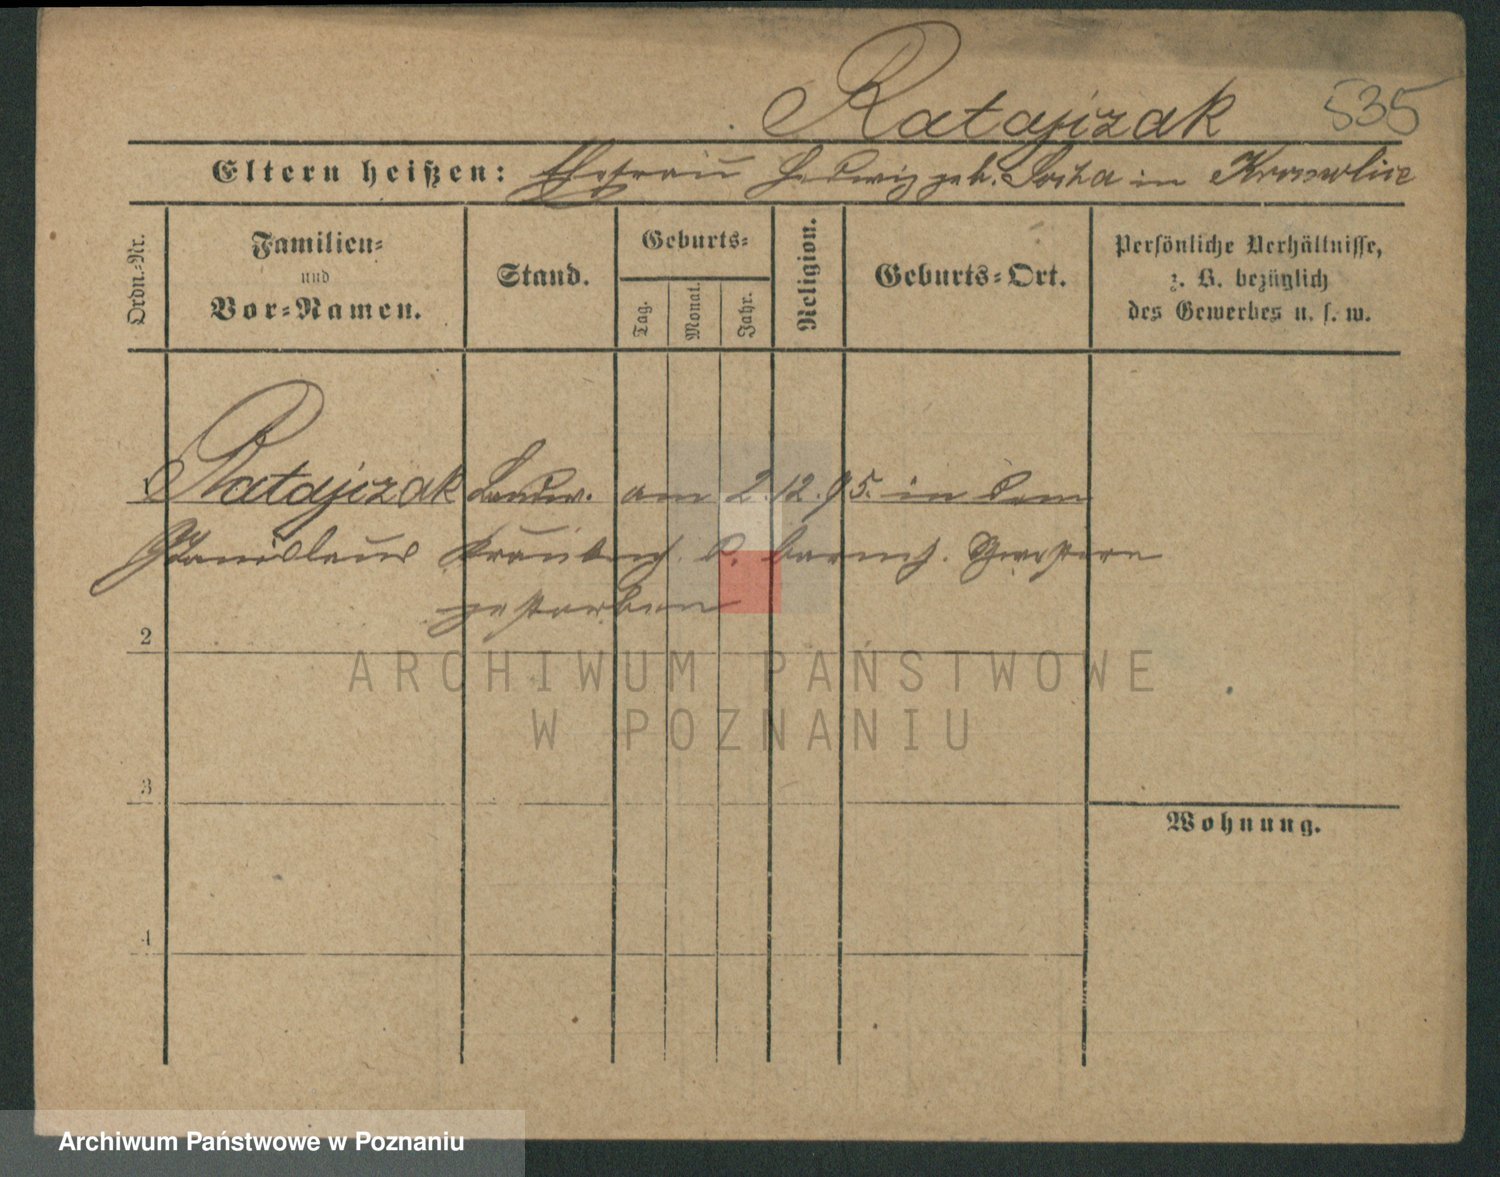 Ratajczak 535
Eltern heißen: Ehefrau Hedwig geb. Socha in
Ordn.-Nr.
Familien-
und
Vor-Namen.
Stand.
Geburts-
Tag.
Monat.
Jahr.
Religion.
Geburts-Ort.
Persönliche Verhältnisse,
z. B. bezüglich
des Gewerbes u. s. w.
1 Ratajczak Landw. am 2. 12. 95. in dem
Stanislaus Krankenh. d. barmh. Schwestern
gestorben
2
ARCHIWUM PAŃSTWOWE
W POZNANIU
3
Wohnung.
4
Archiwum Państwowe w Poznaniu